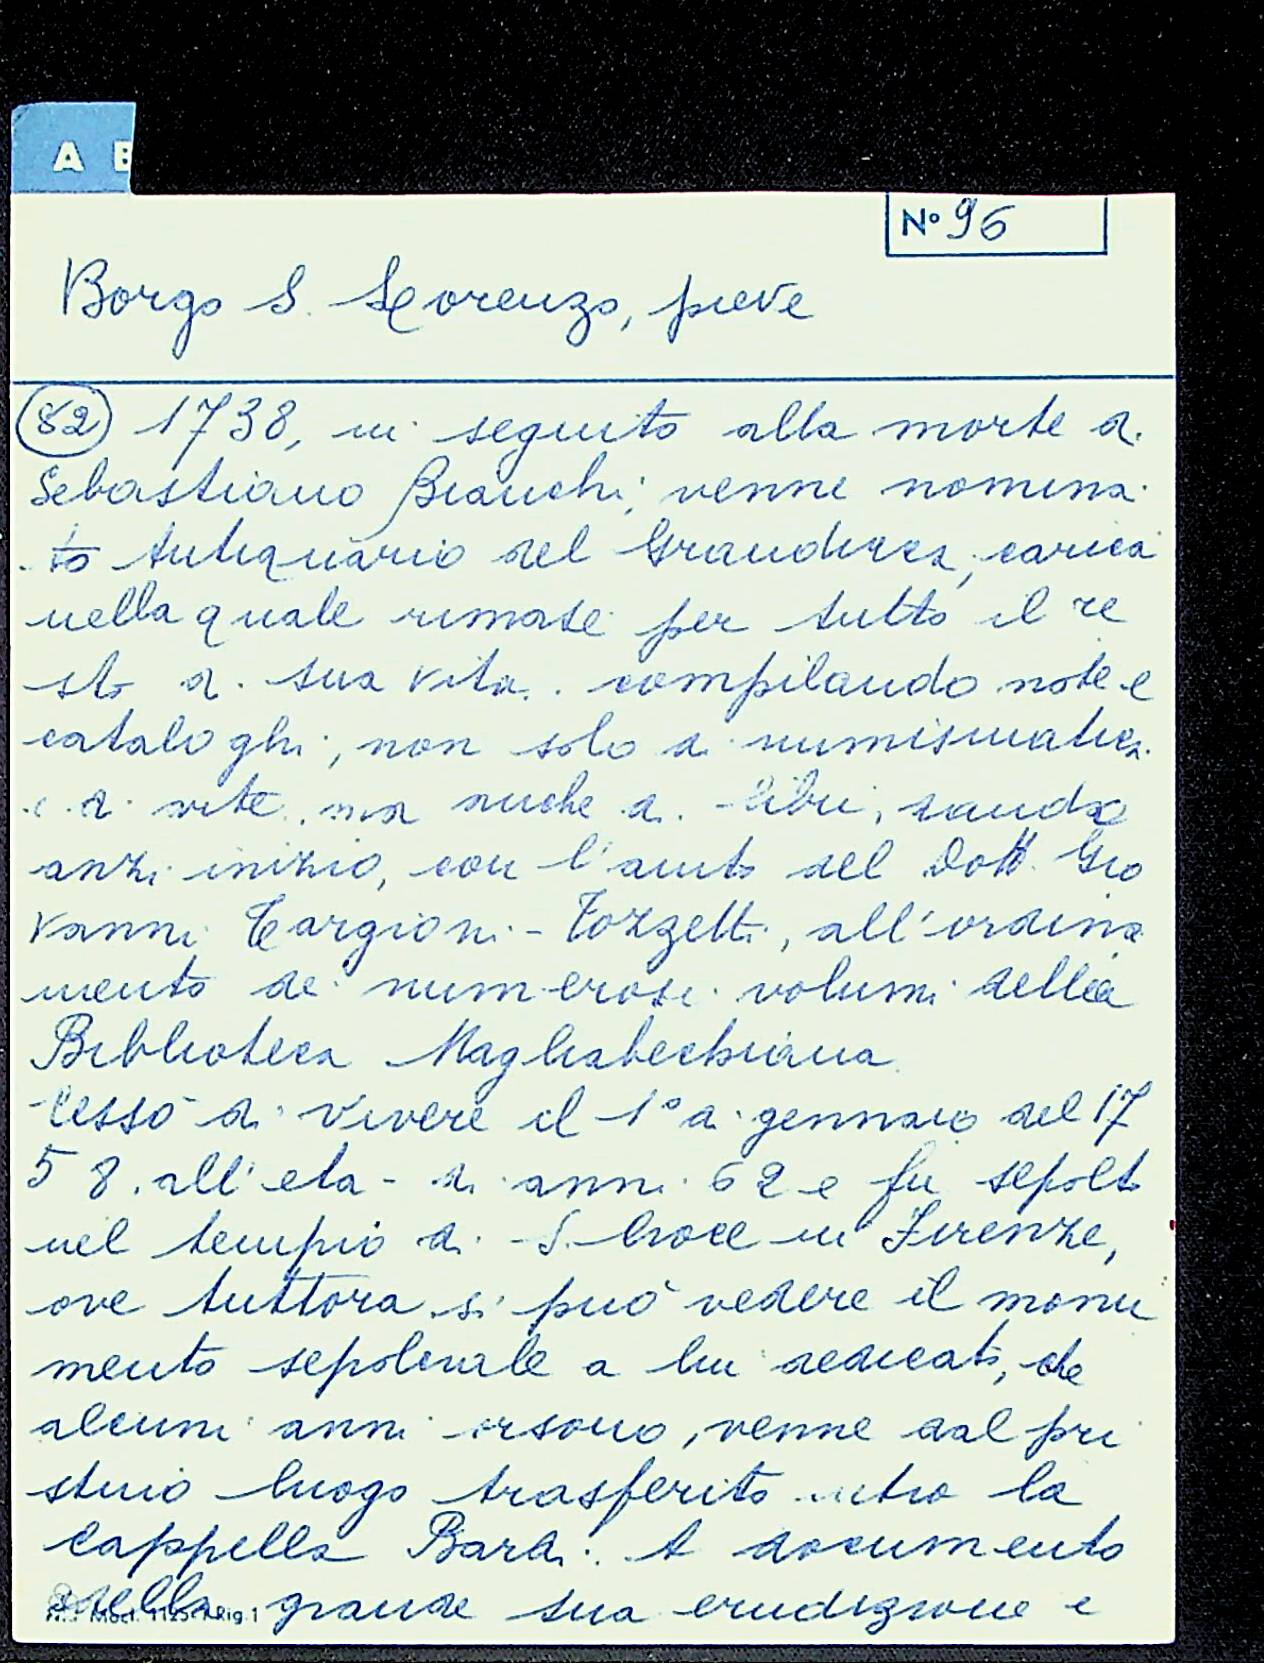 A B
N° 96
Borgo S. Lorenzo, pieve
82 1738, in seguito alla morte di
Sebastiano Bianchi, venne nomina
to Antiquario del Granduca, carica
nella quale rimase per tutto il re
sto di sua vita. compilando note e
cataloghi, non solo di numismatica
e di arte, ma anche di libri, dando
anzi inizio, con l'aiuto del Dott. Gio
vanni Targioni-Tozzetti, all'ordina
mento dei numerosi volumi della
Biblioteca Magliabechiana
Cessò di vivere il 1° di gennaio del 17
58. all'età di anni 62 e fu sepolto
nel tempio di S. Croce in Firenze,
ove tuttora si può vedere il monu
mento sepolcrale a lui dedicato, che
alcuni anni orsono, venne dal pri
stino luogo trasferito entro la
Cappella Bardi. A documento
della grande sua erudizione e
Rig. 1